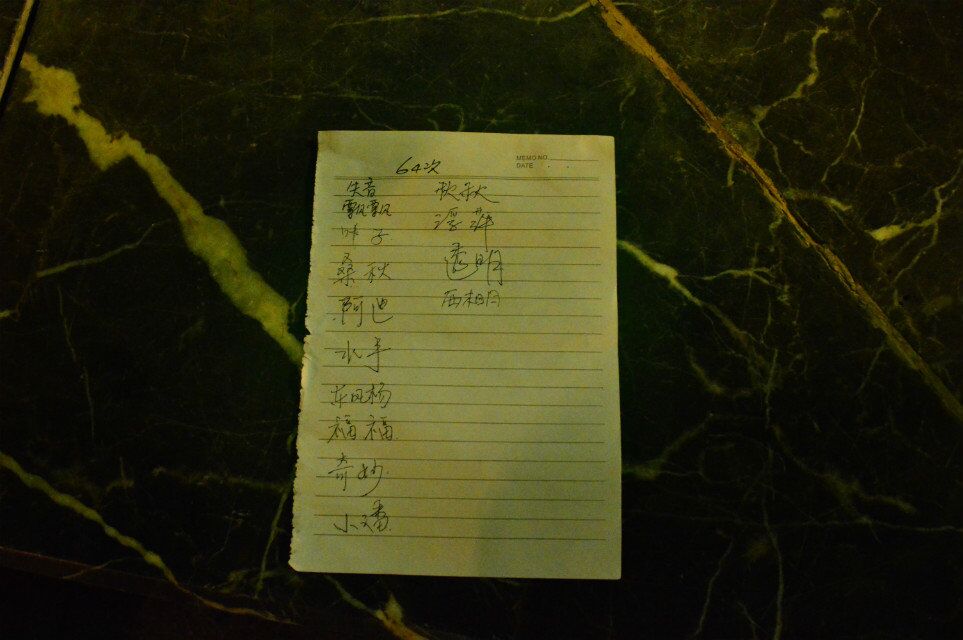 64次
MEMO NO.
DATE
失音
飘飘
叶子
桑秋
阿迪
水手
东风杨
福福
奇妙
小潘
秋秋
浮萍
透明
西相月